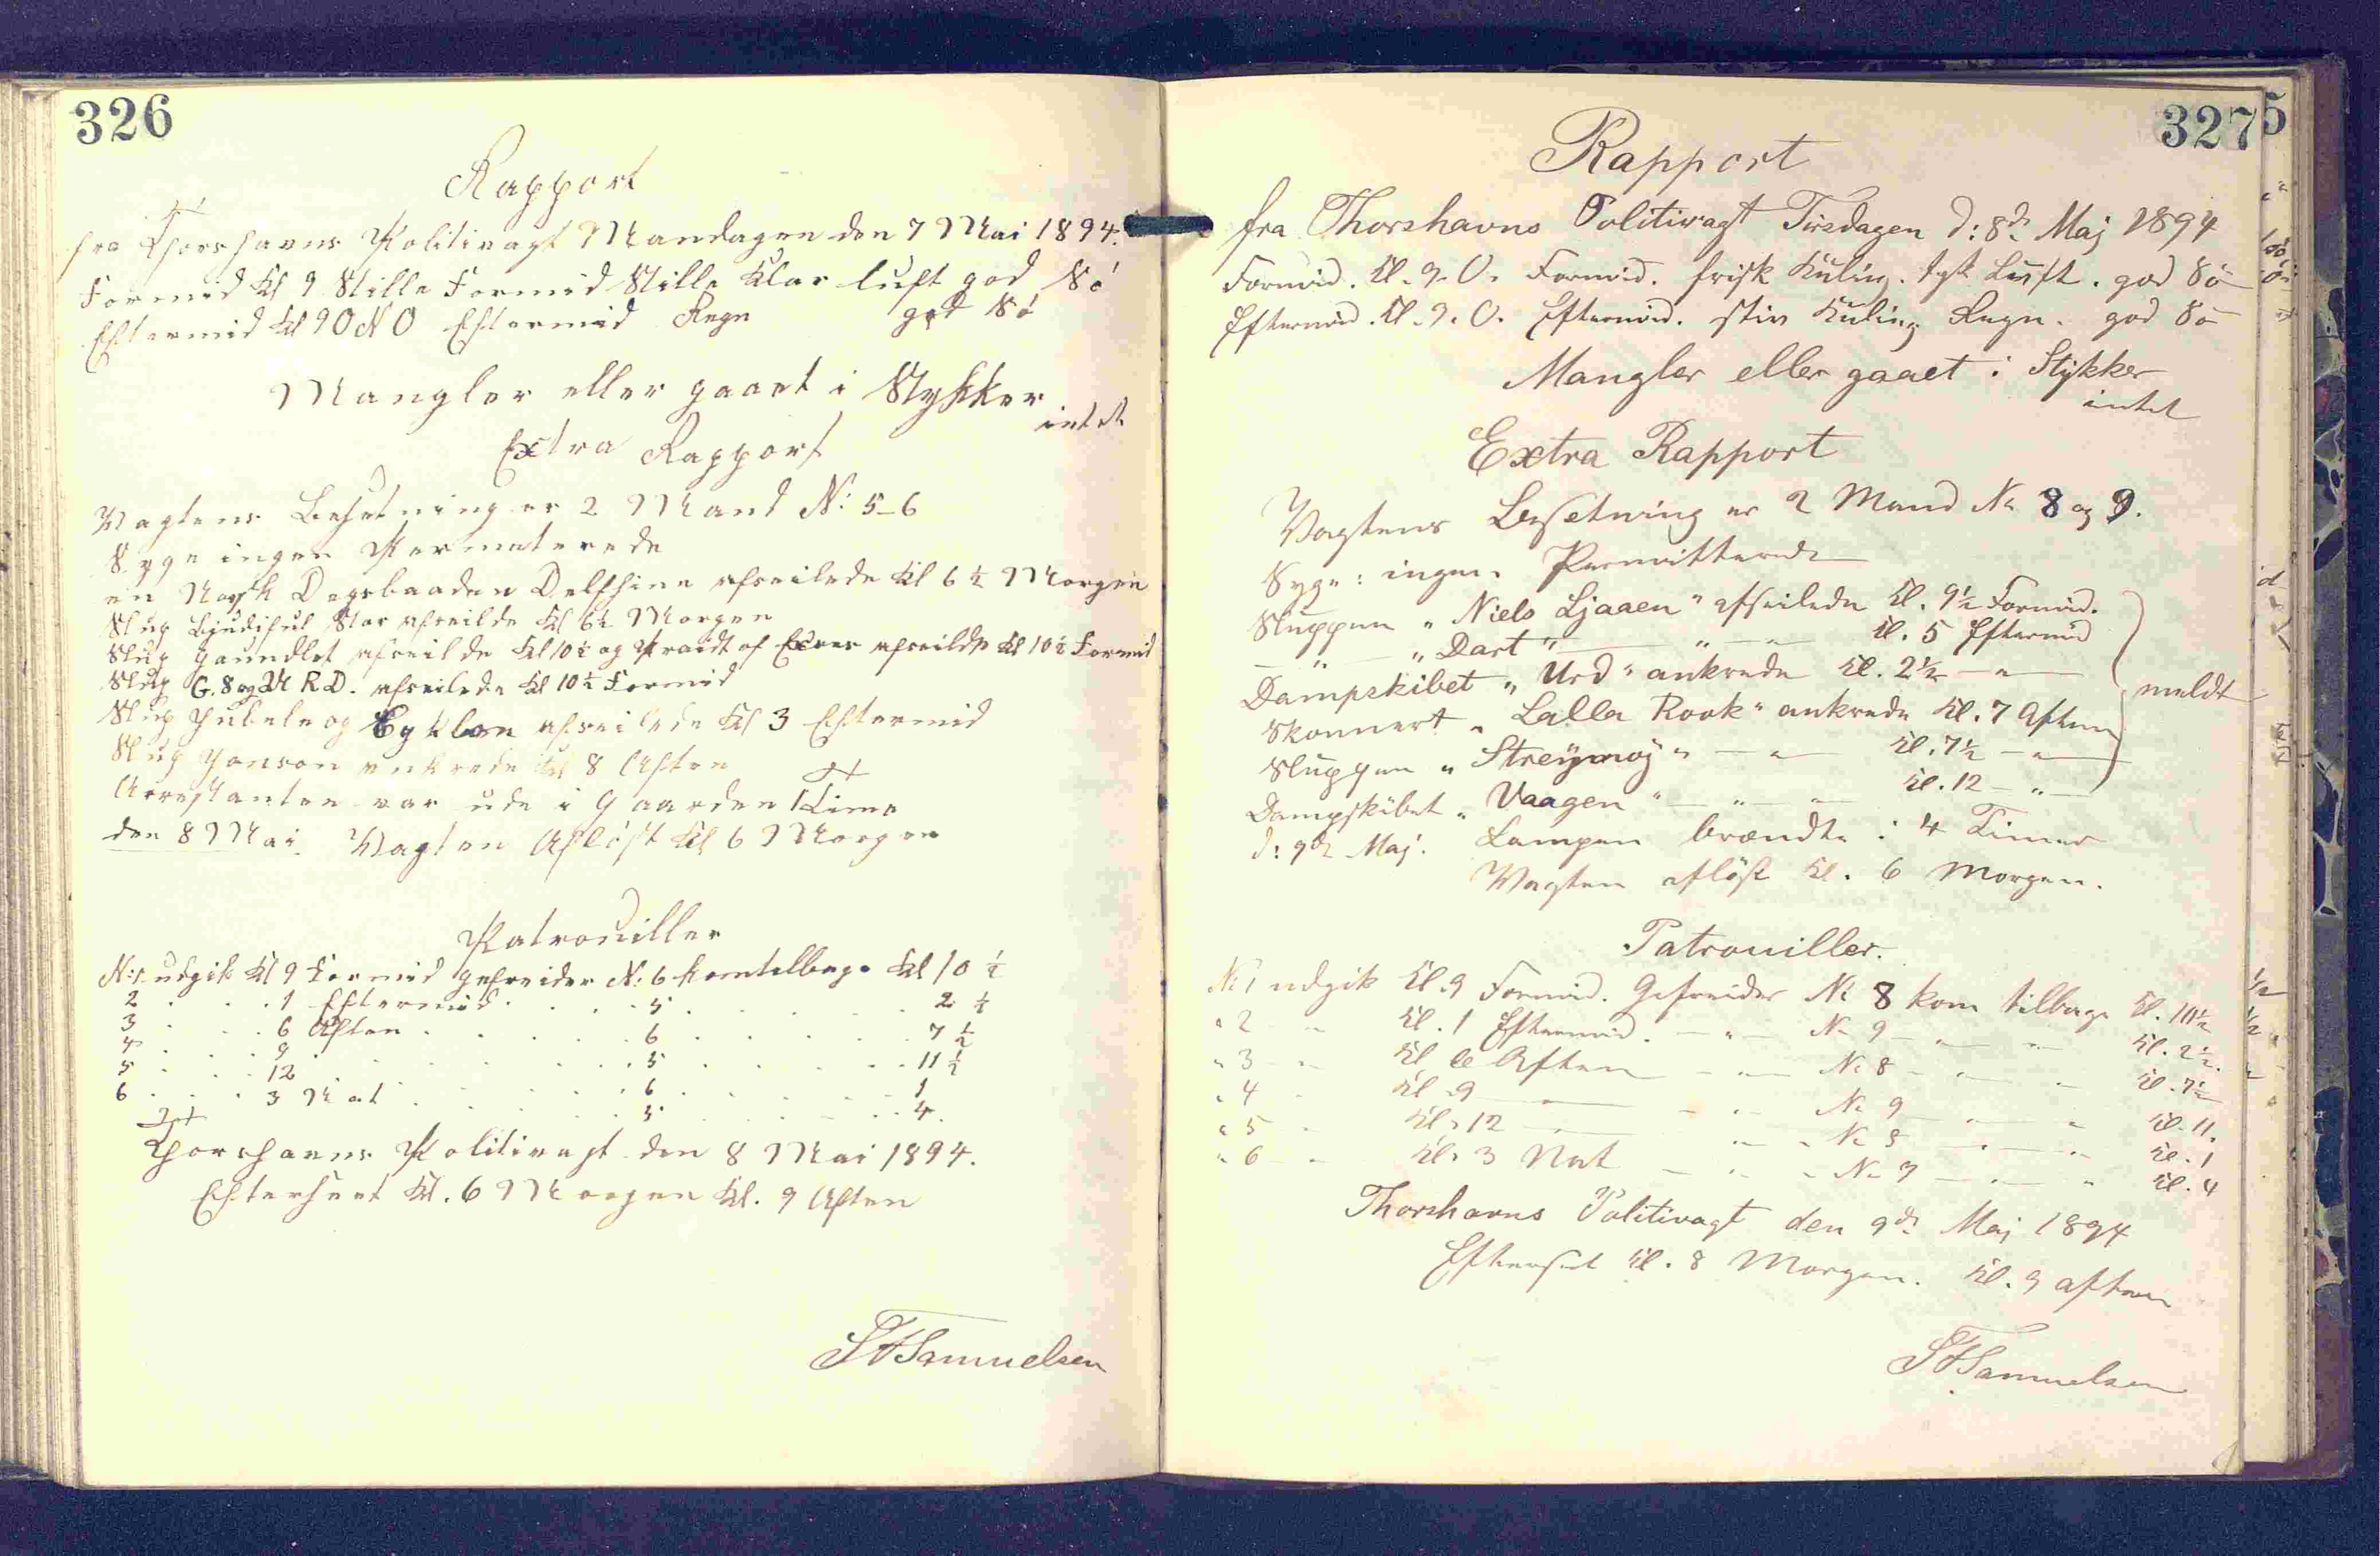 326
Rapport
fra Thorshavns Politivagt Mandagen den 7 Mai 1894.
Formid Kl 9 Stille Formid Stille Klar luft god Sö
Eftermid Kl 9 O N O Eftermid Regn god Sö
Mangler eller gaaet i Stykker
intet
Extra Rapport
Vagtens Besetning er 2 Mand N: 5-6
Syge ingen Permeterede
en Norsk Dagsbaaden Delfhine afseilede Kl 6 1/2 Morgen
Slup Star afseilde Kl 6 1/2 Morgen
Slup afseilde Kl 10 1/2 og af afseilde Kl 10 1/2 Formid
Slup G. S og M R D. afseilede Kl 10 1/2 Formid
Slup Jubele og Cyklon afseilede Kl 3 Eftermid
Slup Janson ankrede Kl 8 Aften
Arrestanten var ude i Gaarden 1 Time
den 8 Mai Vagten Aflöst Kl 6 Morgen
Patrouiller
N: 1 udgik Kl 9 Formid gefreider N: 6 kom tilbage Kl 10 1/2
2 . . . 1 Eftermid . . . 5 . . . 2 1/2
3 . . . 6 Aften . . . 6 . . . 7 1/2
4 . . . 9 . . . 5 . . . 11 1/2
5 . . . 12 . . . 6 . . . 1
6 . . . 3 Nat . . . 5 . . . 4.
Thorshavns Politivagt den 8 Mai 1894.
Efterseet Kl. 6 Morgen Kl. 9 Aften
Samuelsen
327
Rapport
fra Thorshavns Politivagt Tirsdagen d: 8de Maj 1894
Formid. Kl. 9. O. Formid. frisk Kuling. tyk Luft. god Sö
Eftermid. Kl. 9. O. Eftermid. stiv Kuling Regn. god Sö
Mangler eller gaaet i Stykker
intet
Extra Rapport
Vagtens Besetning er 2 Mand No 8 og 9.
Syge: ingen. Permitterede
Sluppen "Niels Ljaaen" afseilede Kl. 9 1/2 Formid.
— " — "Dart" — " — " Kl. 5 Eftermid
Dampskibet "Urd" ankrede Kl. 2 1/2 — " —
meldt
Skonnert "Lalla Rook" ankrede Kl. 7 Aften
Sluppen "Streymoy" — " — Kl. 7 1/2 — " —
Dampskibet "Vaagen" — " — " — Kl. 12 — " —
d: 9de Maj. Lampen brændte i 4 Timer
Vagten aflöst Kl. 6 Morgen.
Patrouiller.
No 1 udgik Kl. 9 Formid. Gefreider No 8 kom tilbage Kl. 10 1/2
" 2 — " Kl. 1 Eftermid. — " — No 9 — " — " Kl. 2 1/2.
" 3 — " Kl 6 Aften — " — No 8 — " — " Kl. 7 1/2
" 4 " Kl 9 — " — No 9 — " — " Kl. 11.
" 5 " Kl. 12 — " — No 8 — " — " Kl. 1
" 6 — " Kl. 3 Nat — " — No 9 — " — " Kl. 4
Thorshavns Politivagt den 9de Maj 1894
Efterset Kl. 8 Morgen. Kl. 9 aften
Samuelsen